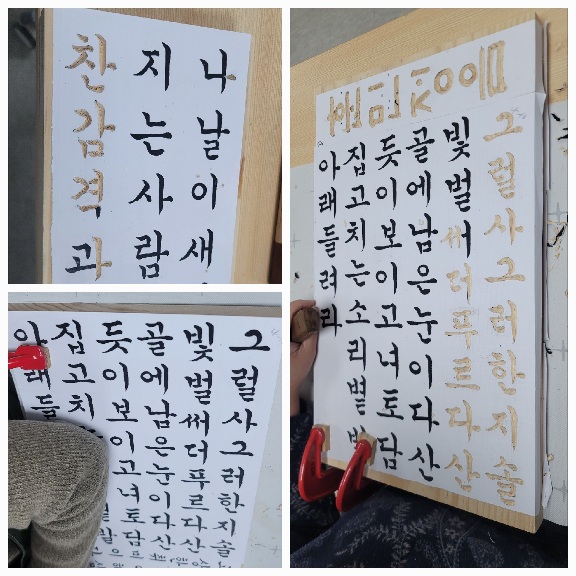 나날이새
지는사람
찬감격과
그럴사그러한지솔
빛벌써더푸르다산
골에남은눈이다산
듯이보이고녀토담
집고치는소리볕
아래들려라
그럴사그러한지솔
빛벌써더푸르다산
골에남은눈이다산
듯이보이고녀토담
집고치
아래들